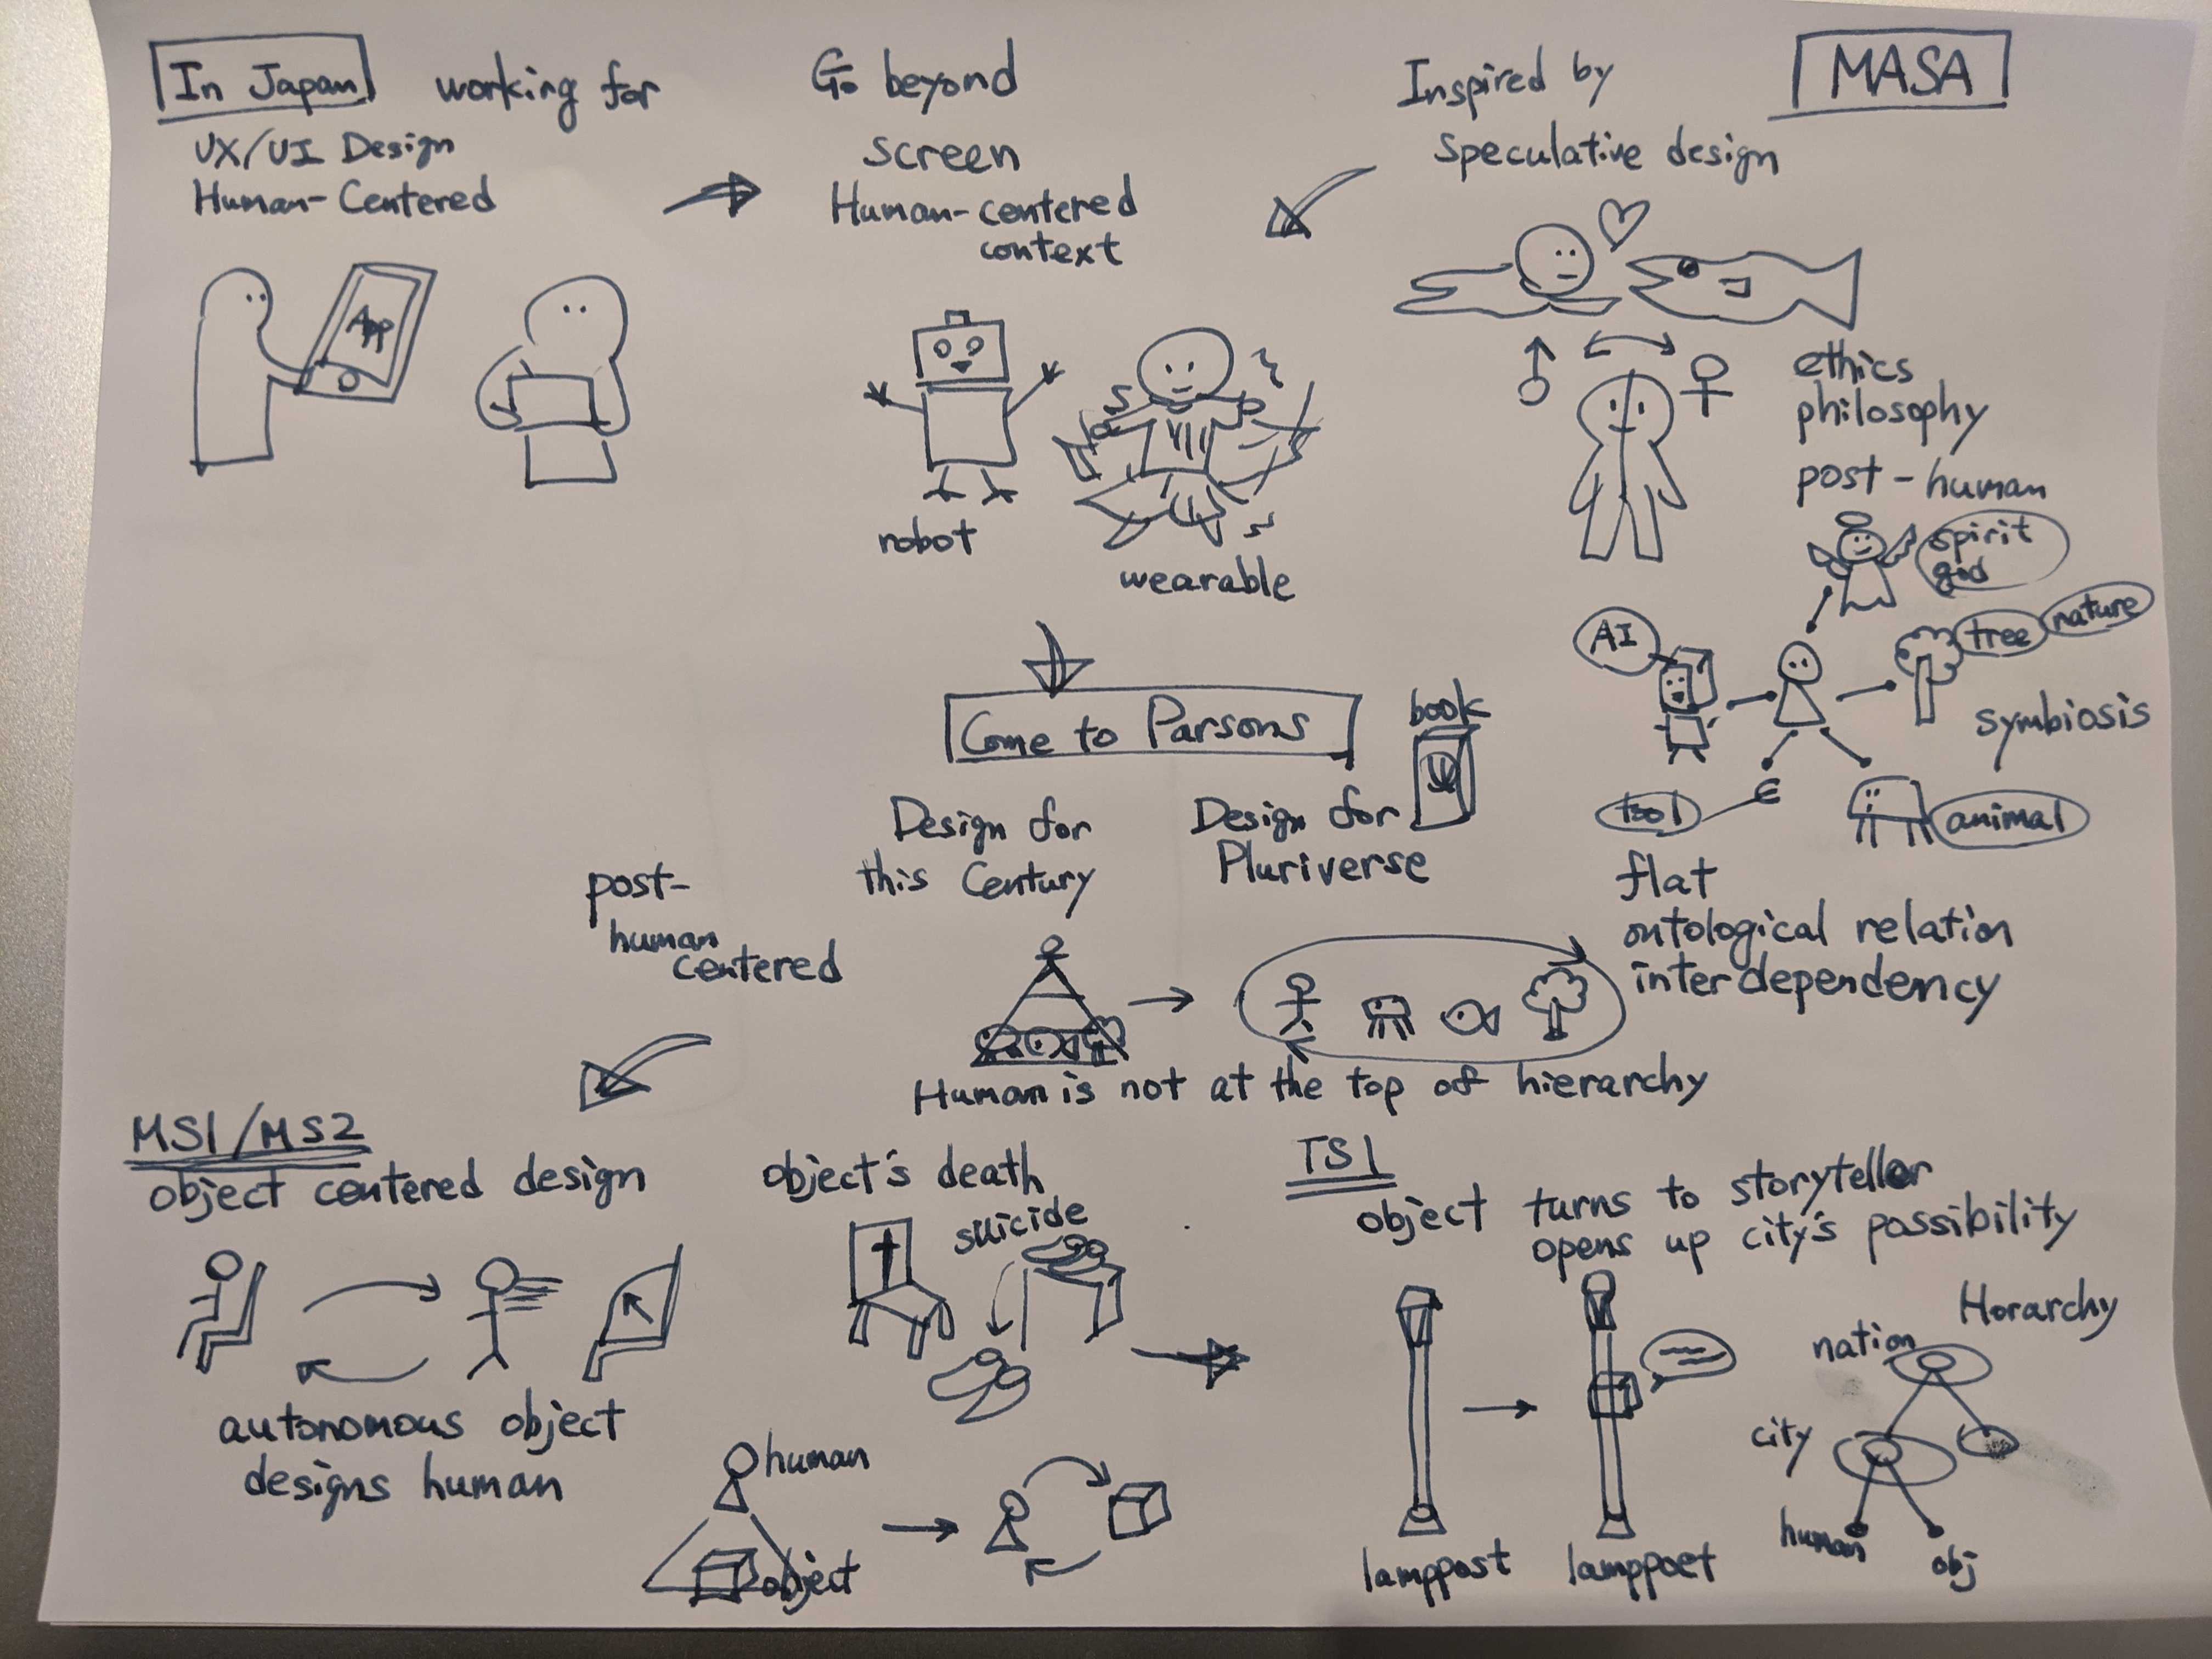 In Japan working for
UX/UI Design
Human-Centered
App
Go beyond
screen
Human-centered
context
robot
wearable
Inspired by
speculative design
MASA
ethics
philosophy
post-human
spirit
god
AI
tree
nature
symbiosis
tool
animal
flat
ontological relation
interdependency
Come to Parsons
book
Design for
this Century
Design for
Pluriverse
post-
human
centered
Human is not at the top of hierarchy
MS1/MS2
object centered design
autonomous object
designs human
object's death
suicide
human
object
TS1
object turns to storyteller
opens up city's possibility
lamppost
lamppoet
Horarchy
nation
city
human
obj